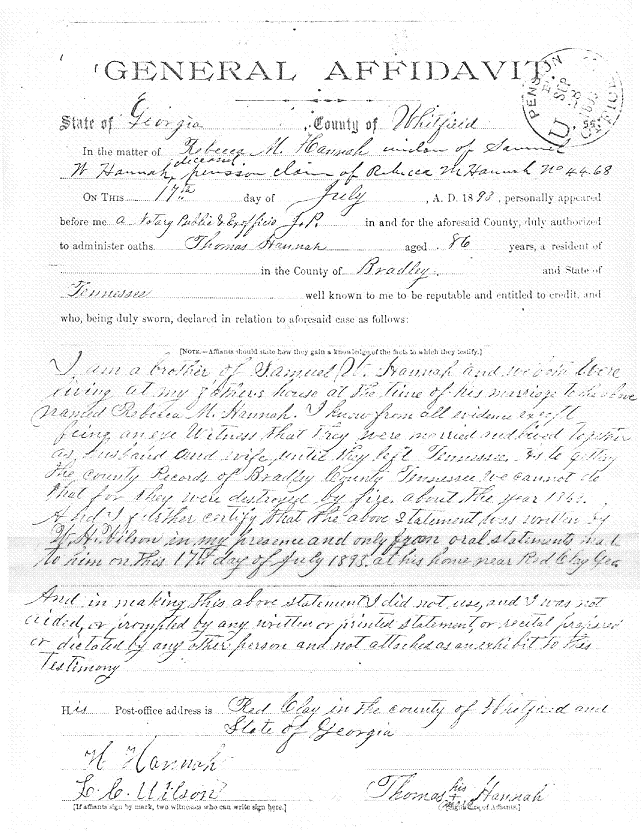 GENERAL AFFIDAVIT
PENSION
SEP
State of Georgia County of Whitfield
In the matter of Rebecca M. Hannah widow of Samuel
deceased
W Hannah, pension claim of Rebecca M Hannah No 4468
ON THIS 17th day of July, A. D. 1893, personally appeared
before me a Notary Public & Exofficio J.P. in and for the aforesaid County, duly authorized
to administer oaths. Thomas Hannah aged 86 years, a resident of
in the County of Bradley and State of
Tennessee well known to me to be reputable and entitled to credit, and
who, being duly sworn, declared in relation to aforesaid case as follows:
[NOTE.—Affiants should state how they gain a knowledge of the facts to which they testify.]
I am a brother of Samuel W. Hannah and we both were
living at my fathers house at the time of his marriage to the above
named Rebecca M. Hannah. I know from all evidence except
being an eye Witness that they were married and lived together
as husband and wife until they left Tennessee. As to getting
the county Records of Bradley County Tennessee we cannot do
that for they were destroyed by fire about the year
And I further certify that the above Statement was written by
W. H. Wilson in my presence and only from oral statements
to him on this 17th day of July 1893, at his home near Red Clay Geo
And in making this above statement I did not use, and I was not
aided, or prompted by any written or printed statement, or recital prepared
or dictated by any other person and not attached as an exhibit to this
testimony
His Post-office address is Red Clay in the county of Whitfield and
State of Georgia
H Hannah
L. C. Wilson Thomas his + mark Hannah
[If affiants sign by mark, two witnesses who can write sign here.] [Signature of Affiants.]